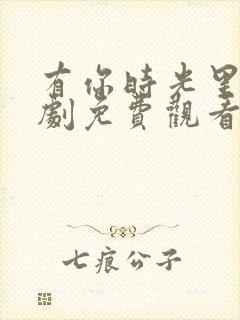 有你時光里
劇免費觀看
七痕公子